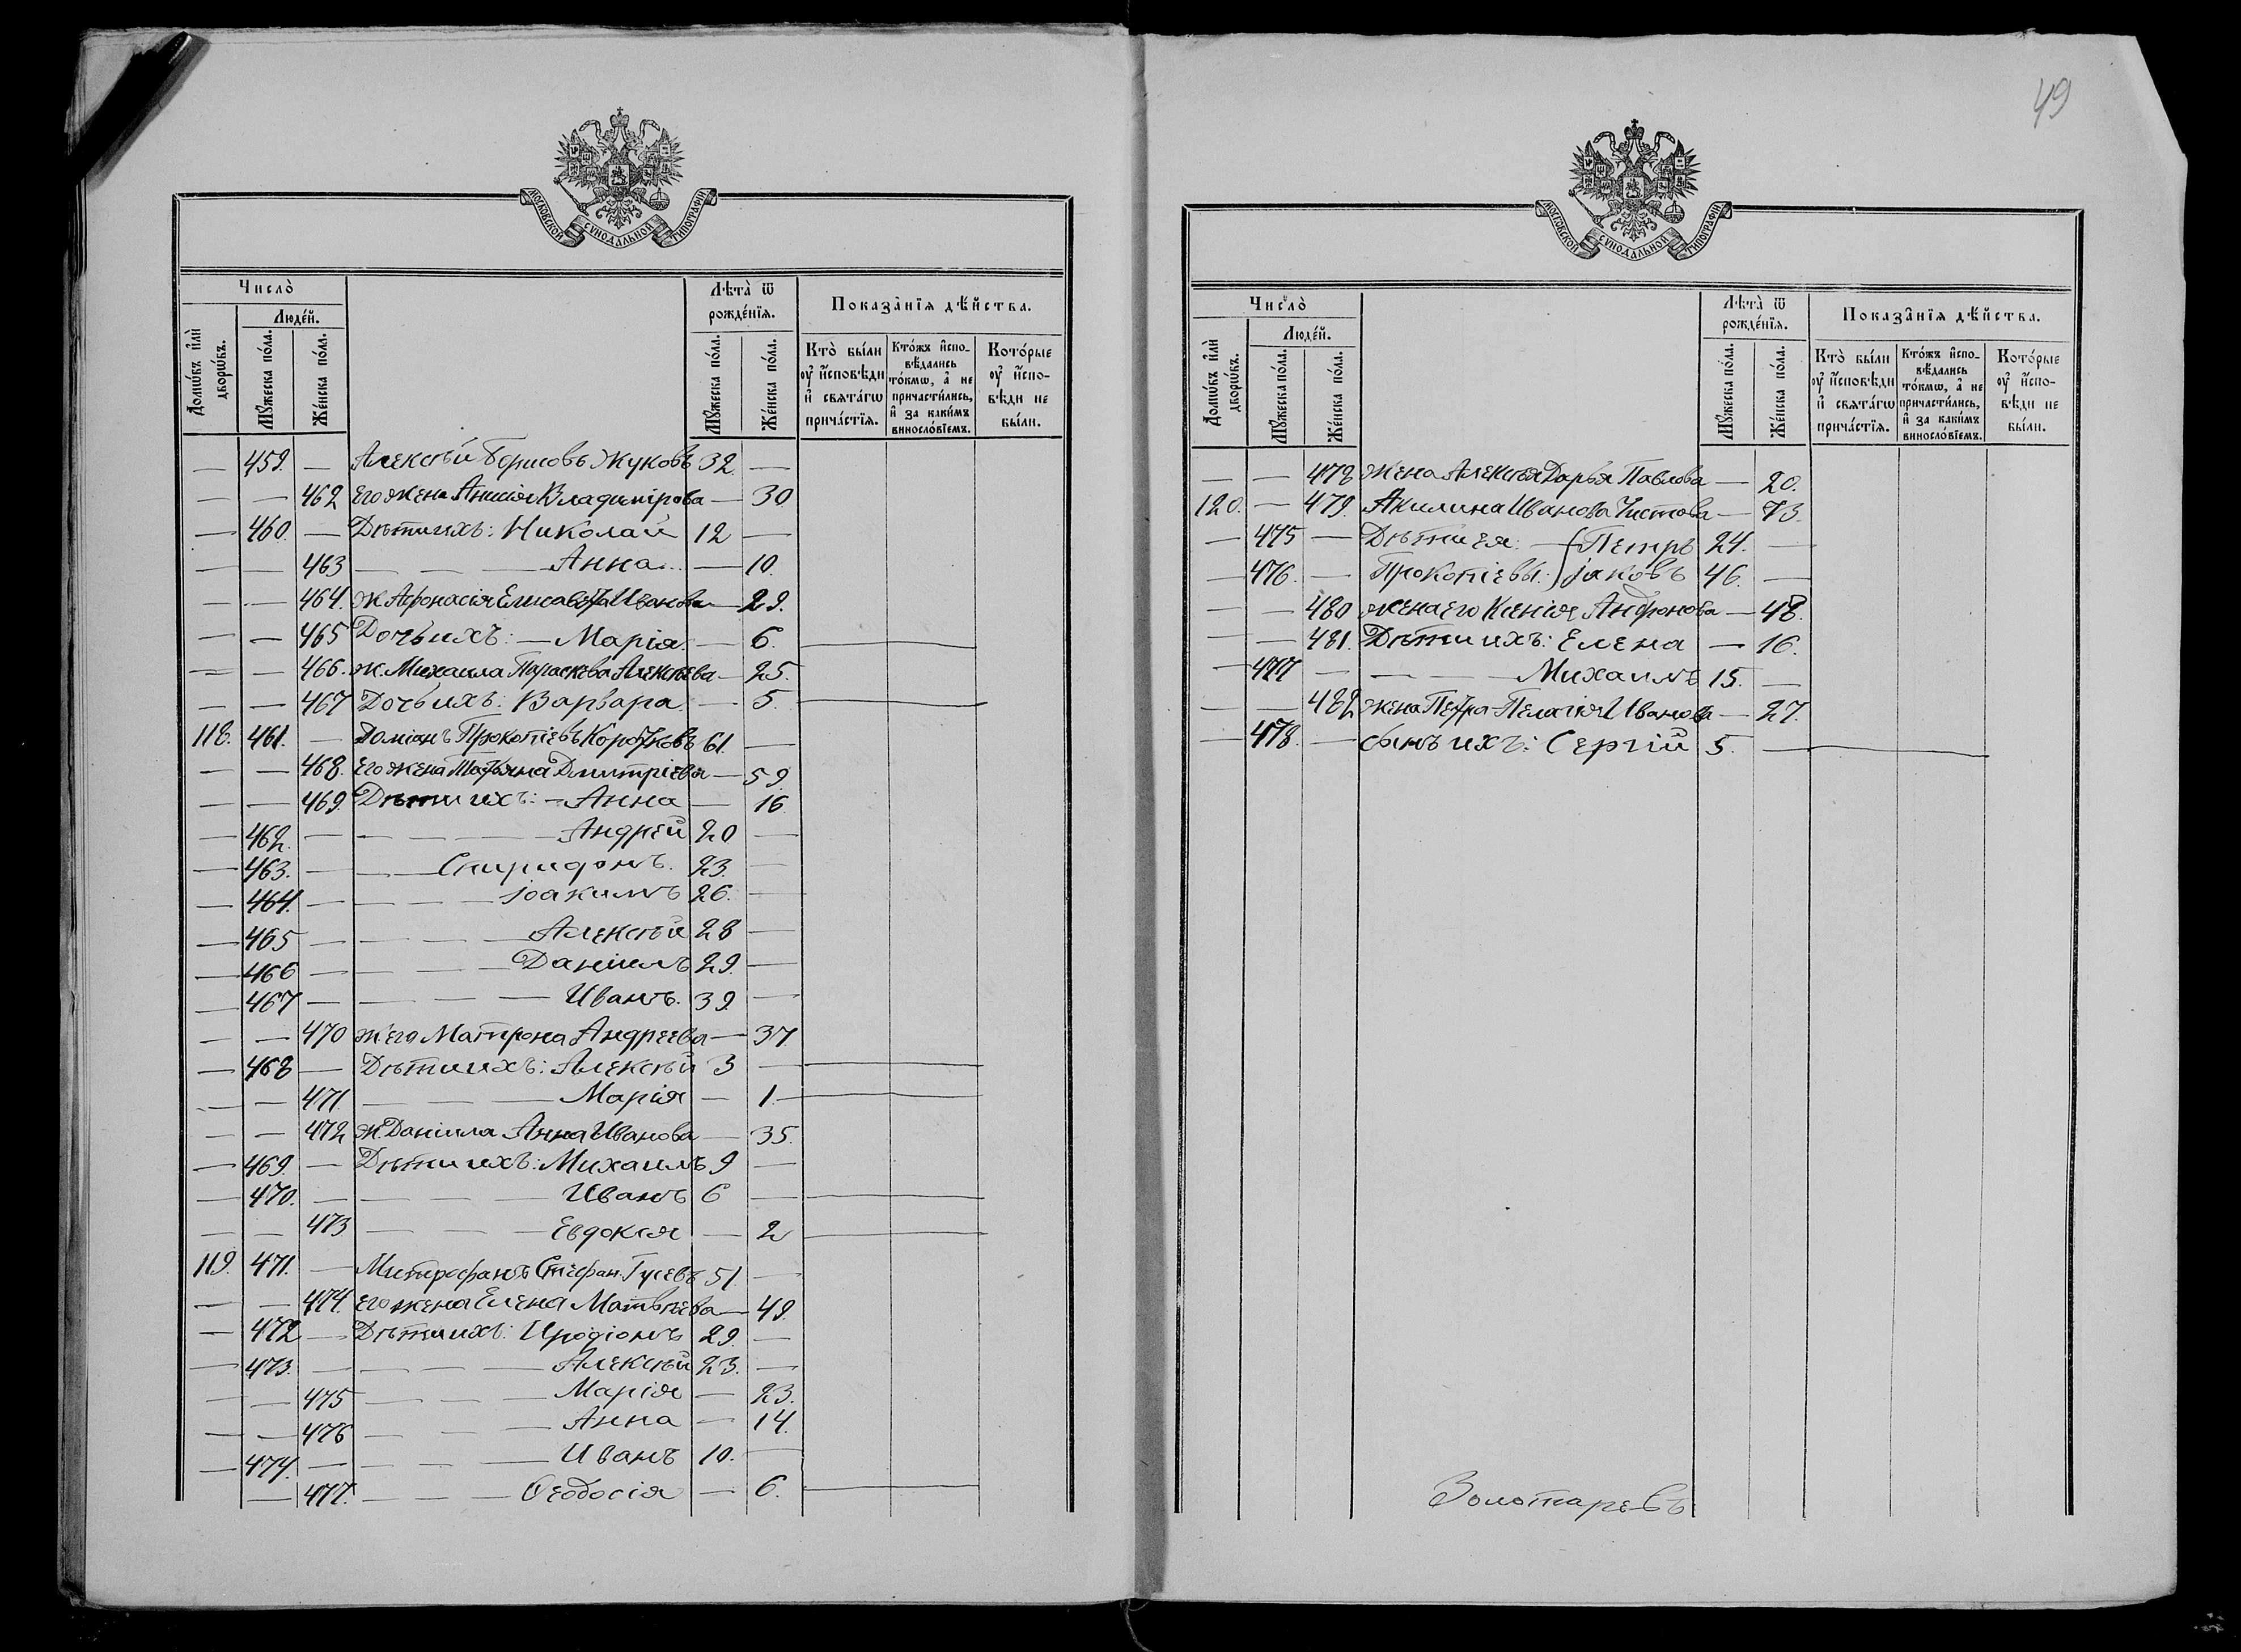 49
МОСКОВСКОЙ СУНОДАЛЬНОЙ ТИПОГРАФІИ
Число̀
Людей.
Домѡ́въ и҆лѝ дворѡ́въ.
Мꙋ́жеска по́ла.
Же́нска по́ла.
Лѣта̀ ѿ рожде́нїѧ.
Мꙋ́жеска по́ла.
Же́нска по́ла.
Показа̑нїѧ дѣ́йства.
Кто̀ бы́ли оу҆ и҆сповѣди и҆ свѧта́гѡ прича́стїѧ.
Кто́жъ и҆спо-вѣдались то́кмѡ, а҆ не причасти́лись, и҆ за каки́мъ винослѡ́вїемъ.
Кото́рые оу҆ и҆спо-вѣди не бы́ли.
— 459. — Алексѣй Борисовъ Жуковъ 32. —
— — 462 Его жена Анисія Владимірова — 30
— 460. — Дѣти ихъ: Николай 12 —
— — 463 — — — Анна — 10.
— — 464. Ж. Афонасія Елисавета Иванова — 29.
— — 465 Дочь ихъ: — Марія. — 6.
— — 466. Ж. Михаила Параскева Алексѣева — 25.
— — 467 Дочь ихъ: Варвара. — 5.
118. 461. — Даміанъ Прокопіевъ Коротковъ 61. —
— — 468. Его жена Татьяна Дмитріева — 59.
— — 469. Дѣти ихъ: — Анна — 16.
— 462. — — — — Андрей 20 —
— 463. — — — Спиридонъ. 23. —
— 464. — — — — Іоакимъ 26. —
— 465 — — — — Алексѣй 28 —
— 466 — — — — Даніилъ 29. —
— 467 — — — — Иванъ. 39. —
— — 470 Ж. его Матрона Андреева — 37.
— 468 — Дѣти ихъ: Алексѣй 3 —
— — 471. — — — Марія — 1.
— — 472 Ж. Даніила Анна Иванова — 35.
— 469. — Дѣти ихъ: Михаилъ 9 —
— 470. — — — — Иванъ 6 —
— — 473 — — — Евдокія — 2
119. 471. — Митрофанъ Стефан. Гусевъ 51. —
— — 474. Его жена Елена Матвѣева — 49.
— 472 — Дѣти ихъ: Иродіонъ 29. —
— 473. — — — — Алексѣй 23. —
— — 475 — — — Марія — 23.
— — 476 — — — Анна — 14.
— 474. — — — — Иванъ 10. —
— 477. — — — Ѳеодосія — 6.
МОСКОВСКОЙ СУНОДАЛЬНОЙ ТИПОГРАФІИ
Число̀
Людей.
Домѡ́въ и҆лѝ дворѡ́въ.
Мꙋ́жеска по́ла.
Же́нска по́ла.
Лѣта̀ ѿ рожде́нїѧ.
Мꙋ́жеска по́ла.
Же́нска по́ла.
Показа̑нїѧ дѣ́йства.
Кто̀ бы́ли оу҆ и҆сповѣди и҆ свѧта́гѡ прича́стїѧ.
Кто́жъ и҆спо-вѣдались то́кмѡ, а҆ не причасти́лись, и҆ за каки́мъ винослѡ́вїемъ.
Кото́рые оу҆ и҆спо-вѣди не бы́ли.
— — 478 Жена Алексѣя Дарья Павлова — 20.
120. — 479. Акилина Иванова Чистова — 73.
— 475 — Дѣти ея: — Петръ 24. —
— 476. — Прокопіевы: Іаковъ 46. —
— — 480 Жена его Ксенія Андронова — 48.
— — 481. Дѣти ихъ: Елена — 16.
— 477 — — — Михаилъ 15. —
— — 482 Жена Петра — Пелагія Иванова — 27.
— 478. — Сынъ ихъ: Сергій 5. —
Золотаревъ